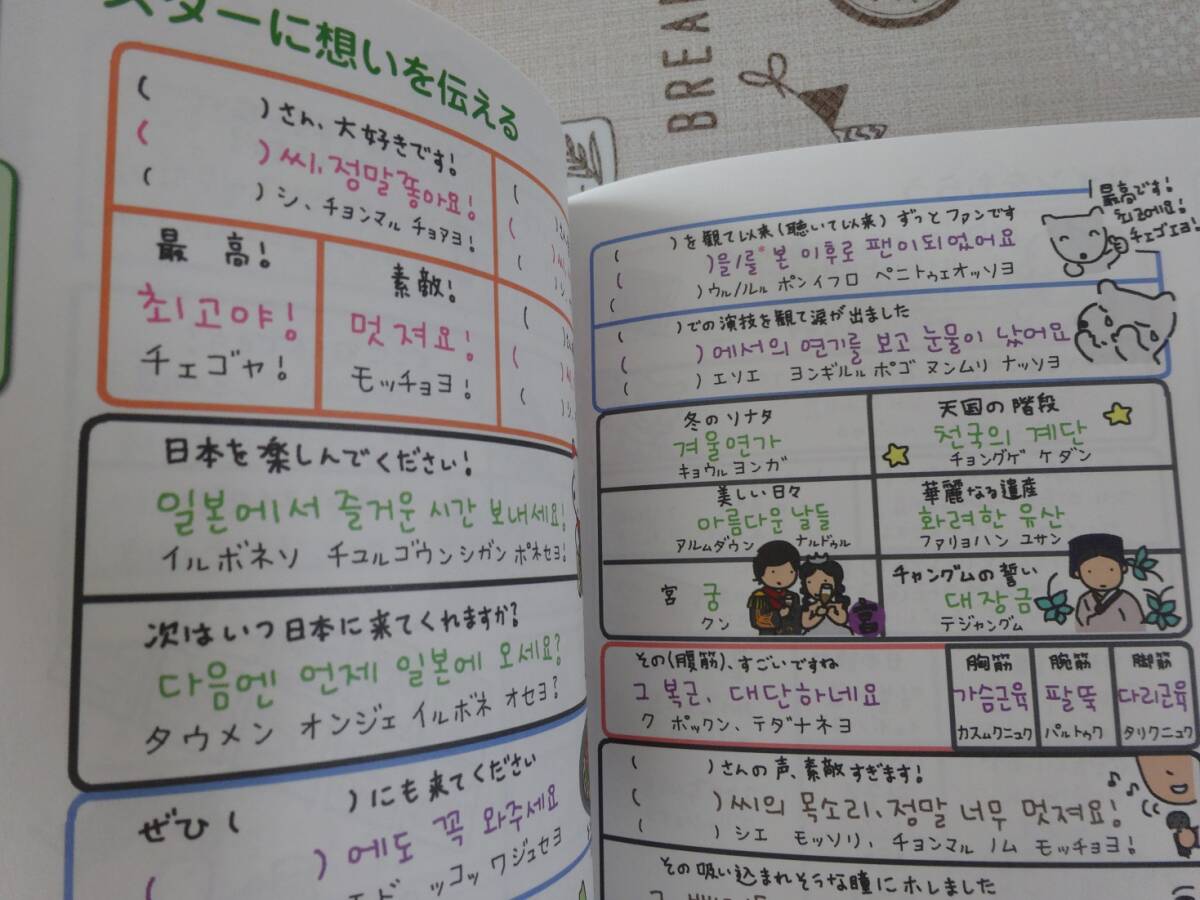 スターに想いを伝える
( )さん、大好きです!
( )씨, 정말 좋아요!
( )シ、チョンマル チョアヨ!
最高!
최고야!
チェゴヤ!
素敵!
멋져요!
モッチョヨ!
日本を楽しんでください!
일본에서 즐거운 시간 보내세요!
イルボネソ チュルゴウン シガン ポネセヨ!
次はいつ日本に来てくれますか?
다음엔 언제 일본에 오세요?
タウメン オンジェ イルボネ オセヨ?
ぜひ( )にも来てください
( )에도 꼭 와주세요
エド ッコッ ワジュセヨ
BREA
( )を観て以来(聴いて以来)ずっとファンです
( )을/를* 본 이후로 팬이되었어요
( )ウル/ルル ポン イフロ ペニトゥェオッソヨ
最高です!
최고에요!
チェゴエヨ!
( )での演技を観て涙が出ました
( )에서의 연기를 보고 눈물이 났어요
( )エソエ ヨンギルル ポゴ ヌンムリ ナッソヨ
冬のソナタ
겨울연가
キョウルヨンガ
天国の階段
천국의 계단
チョングゲ ケダン
美しい日々
아름다운 날들
アルムダウン ナルドゥル
華麗なる遺産
화려한 유산
ファリョハン ユサン
宮
궁
クン
宮
チャングムの誓い
대장금
テジャングム
その(腹筋)、すごいですね
그 복근, 대단하네요
ク ポックン、テダナネヨ
胸筋
가슴근육
カスムクニュク
腕筋
팔뚝
パルトゥク
脚筋
다리근육
タリクニュク
( )さんの声、素敵すぎます!
( )씨의 목소리, 정말 너무 멋져요!
( )シエ モッソリ、チョンマル ノム モッチョヨ!
その吸い込まれそうな瞳にホレました